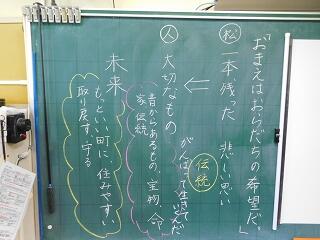 「おまえはおらだちの希望だ。」
松 一本残った 悲しい思い
がんばって生きて
いくんだ
伝統
人 大切なもの
昔からあるもの、宝物、命
家、伝統
未来
もっといい町に、住みやすい
取り戻す、守る